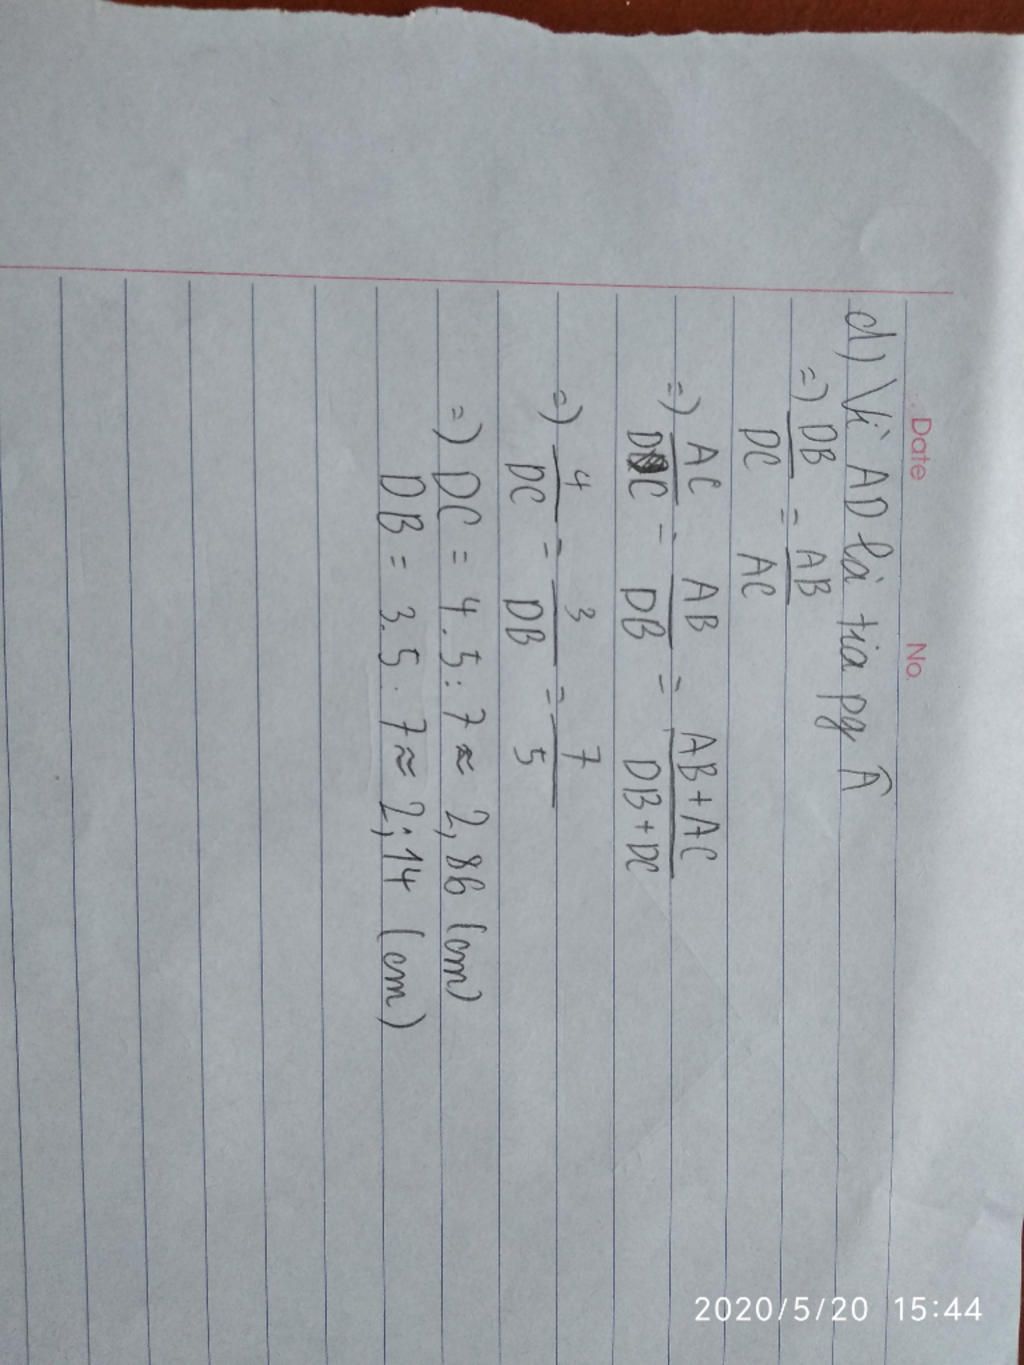 Date No.
d) Vì AD là tia pg Â
=) DB/DC = AB/AC
=) AC/DC = AB/DB = AB+AC/DB+DC
=) 4/DC = 3/DB = 7/5
=) DC = 4.5:7 ≈ 2,86 (cm)
DB = 3.5:7 ≈ 2,14 (cm)
2020/5/20 15:44